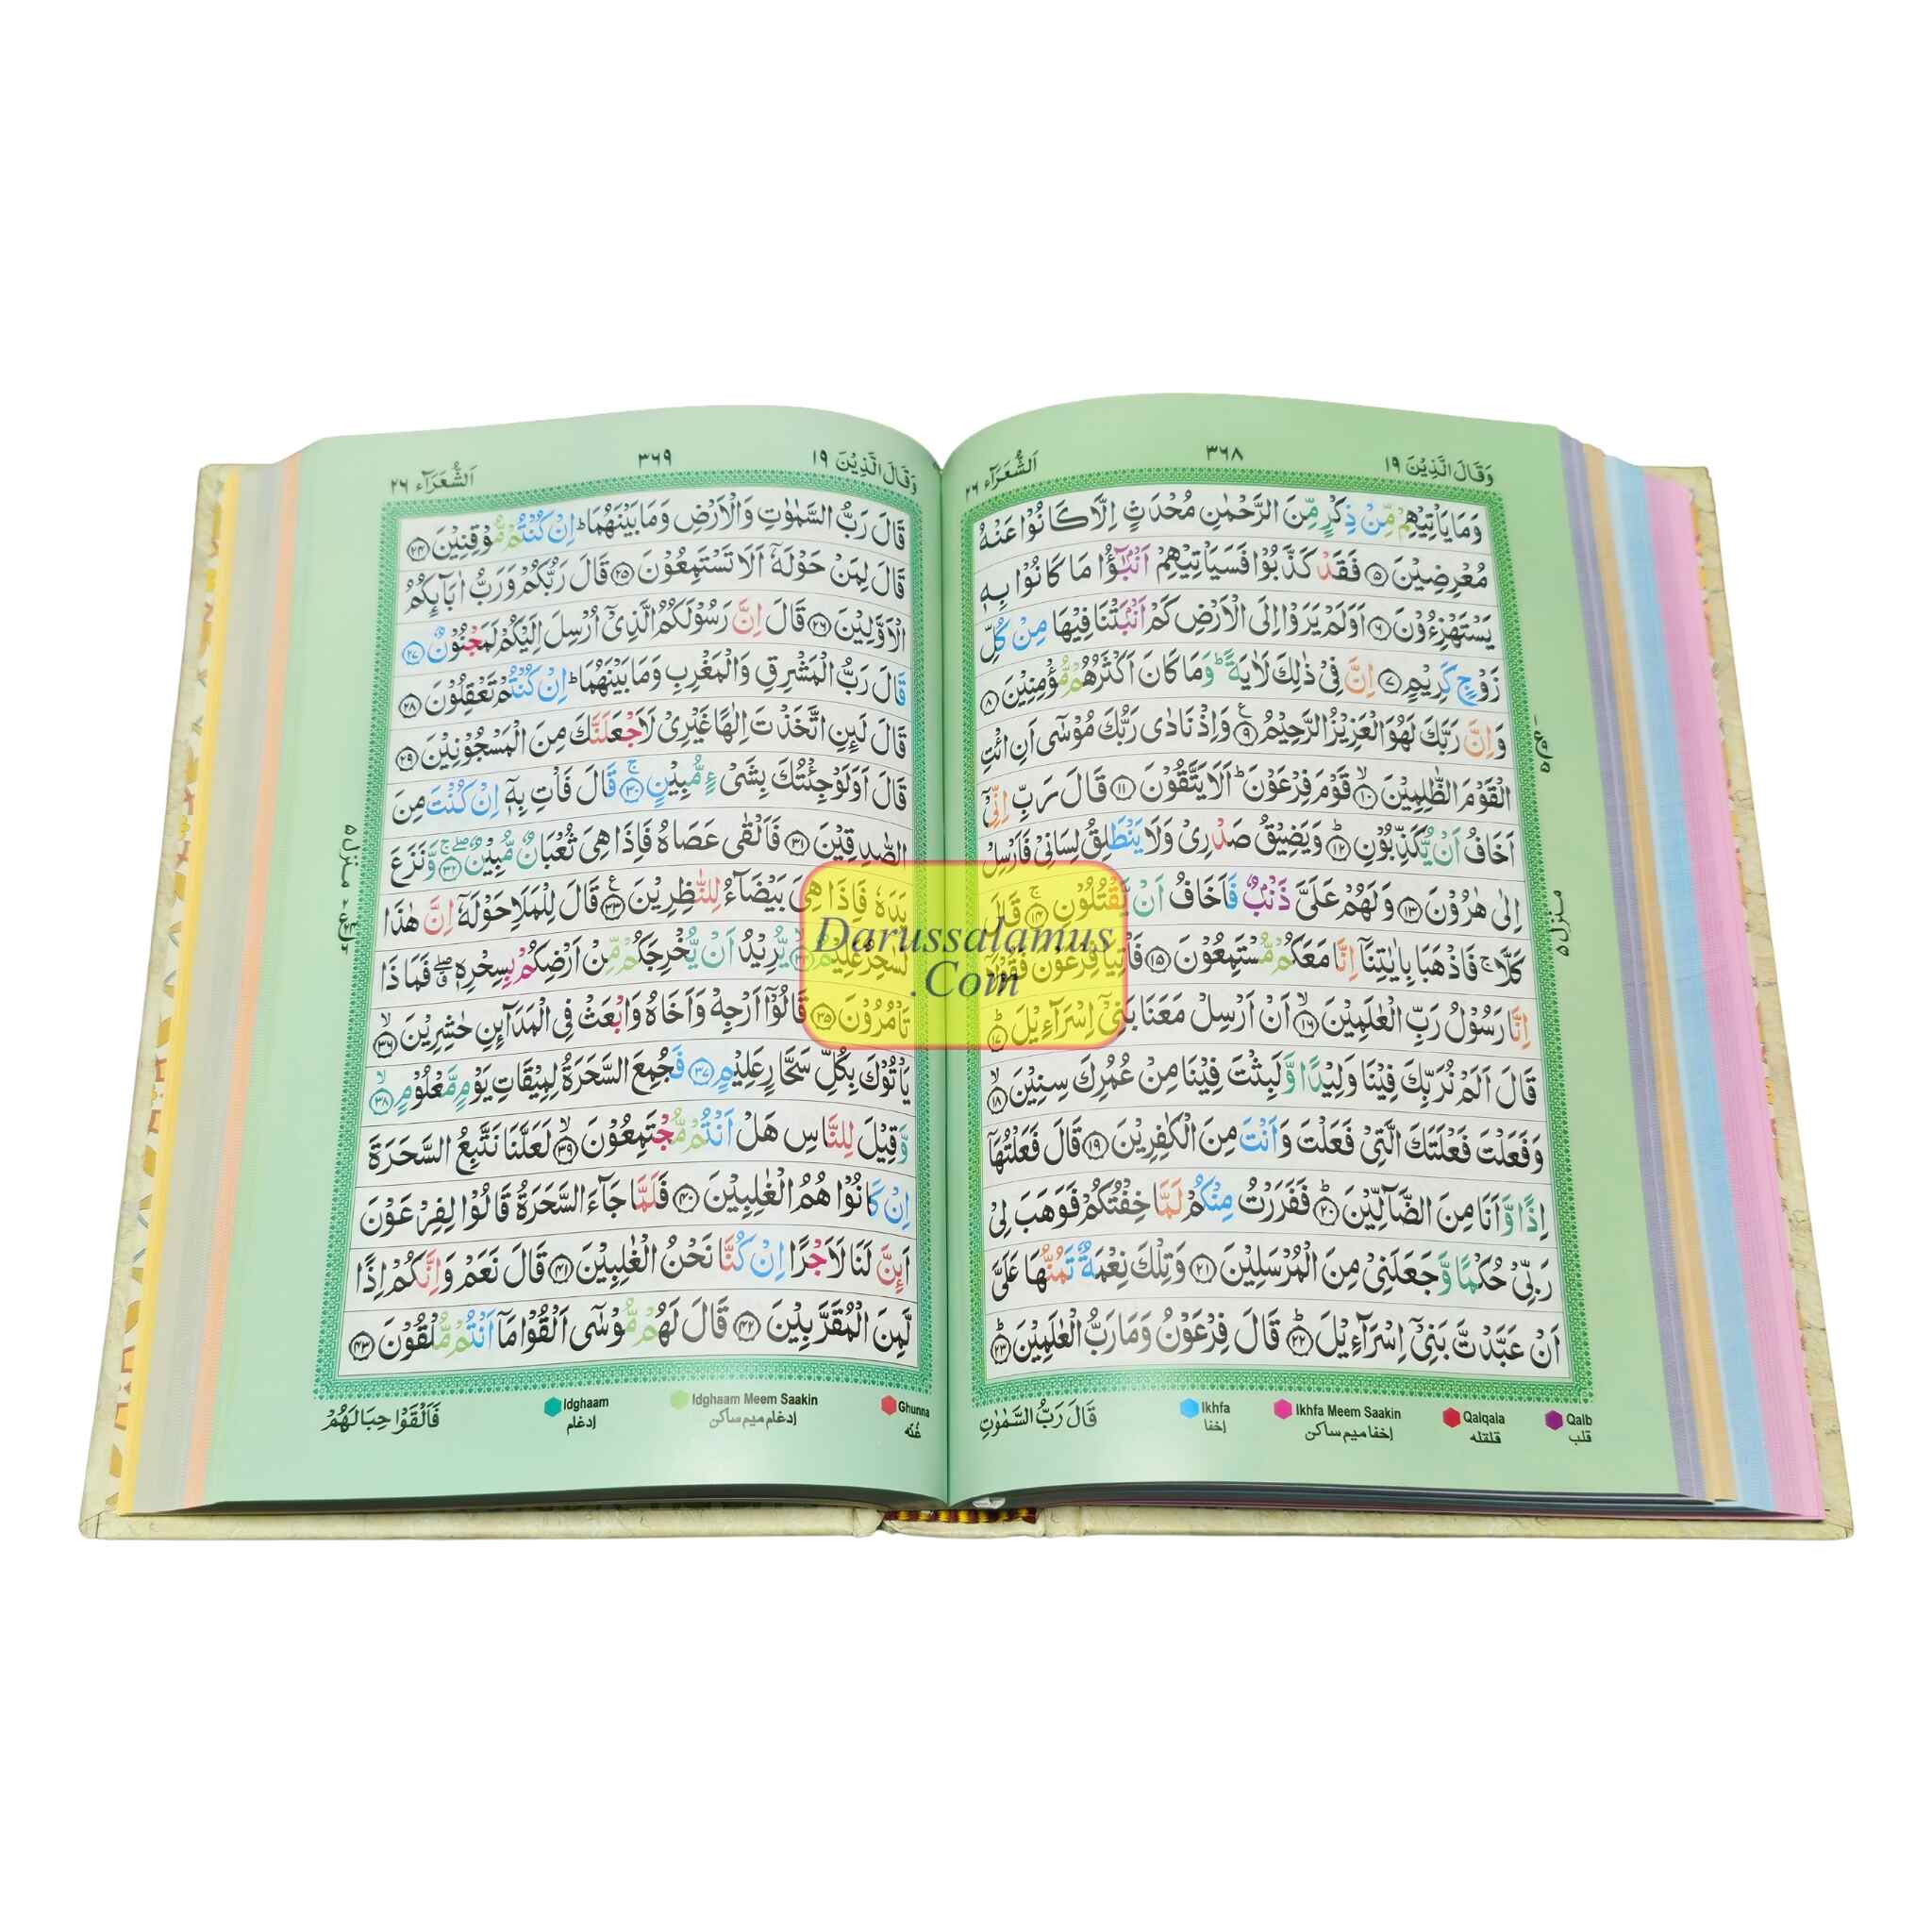 وَقَالَ الَّذِيْنَ ١٩
٣٦٨
اَلشُّعَرَآء ٢٦
وَمَا يَاْتِيْهِمْ مِّنْ ذِكْرٍ مِّنَ الرَّحْمٰنِ مُحْدَثٍ اِلَّا كَانُوْا عَنْهُ
مُعْرِضِيْنَ ﴿٥﴾ فَقَدْ كَذَّبُوْا فَسَيَاْتِيْهِمْ اَنْۢبٰٓؤُا مَا كَانُوْا بِهٖ
يَسْتَهْزِءُوْنَ ﴿٦﴾ اَوَلَمْ يَرَوْا اِلَى الْاَرْضِ كَمْ اَنْۢبَتْنَا فِيْهَا مِنْ كُلِّ
زَوْجٍ كَرِيْمٍ ﴿٧﴾ اِنَّ فِيْ ذٰلِكَ لَاٰيَةً ؕ وَمَا كَانَ اَكْثَرُهُمْ مُّؤْمِنِيْنَ ﴿٨﴾
وَاِنَّ رَبَّكَ لَهُوَ الْعَزِيْزُ الرَّحِيْمُ ﴿٩﴾ وَاِذْ نَادٰى رَبُّكَ مُوْسٰٓى اَنِ ائْتِ
الْقَوْمَ الظّٰلِمِيْنَ ﴿١٠﴾ قَوْمَ فِرْعَوْنَ ؕ اَلَا يَتَّقُوْنَ ﴿١١﴾ قَالَ رَبِّ اِنِّيْٓ
اَخَافُ اَنْ يُّكَذِّبُوْنِ ﴿١٢﴾ وَيَضِيْقُ صَدْرِيْ وَلَا يَنْطَلِقُ لِسَانِيْ فَاَرْسِلْ
اِلٰى هٰرُوْنَ ﴿١٣﴾ وَلَهُمْ عَلَيَّ ذَنْۢبٌ فَاَخَافُ اَنْ يَّقْتُلُوْنِ ﴿١٤﴾ قَالَ
كَلَّا ۚ فَاذْهَبَا بِاٰيٰتِنَآ اِنَّا مَعَكُمْ مُّسْتَمِعُوْنَ ﴿١٥﴾ فَاْتِيَا فِرْعَوْنَ فَقُوْلَآ
اِنَّا رَسُوْلُ رَبِّ الْعٰلَمِيْنَ ﴿١٦﴾ اَنْ اَرْسِلْ مَعَنَا بَنِيْٓ اِسْرَآءِيْلَ ﴿١٧﴾
قَالَ اَلَمْ نُرَبِّكَ فِيْنَا وَلِيْدًا وَّلَبِثْتَ فِيْنَا مِنْ عُمُرِكَ سِنِيْنَ ﴿١٨﴾
وَفَعَلْتَ فَعْلَتَكَ الَّتِيْ فَعَلْتَ وَاَنْتَ مِنَ الْكٰفِرِيْنَ ﴿١٩﴾ قَالَ فَعَلْتُهَآ
اِذًا وَّاَنَا مِنَ الضَّآلِّيْنَ ﴿٢٠﴾ فَفَرَرْتُ مِنْكُمْ لَمَّا خِفْتُكُمْ فَوَهَبَ لِيْ
رَبِّيْ حُكْمًا وَّجَعَلَنِيْ مِنَ الْمُرْسَلِيْنَ ﴿٢١﴾ وَتِلْكَ نِعْمَةٌ تَمُنُّهَا عَلَيَّ
اَنْ عَبَّدْتَّ بَنِيْٓ اِسْرَآءِيْلَ ﴿٢٢﴾ قَالَ فِرْعَوْنُ وَمَا رَبُّ الْعٰلَمِيْنَ ﴿٢٣﴾
منزل ٥
Qalb
قلب
Qalqala
قلقله
Ikhfa Meem Saakin
إخفا ميم ساكن
Ikhfa
إخفا
قَالَ رَبُّ السَّمٰوٰتِ
وَقَالَ الَّذِيْنَ ١٩
٣٦٩
اَلشُّعَرَآء ٢٦
قَالَ رَبُّ السَّمٰوٰتِ وَالْاَرْضِ وَمَا بَيْنَهُمَا ؕ اِنْ كُنْتُمْ مُّوْقِنِيْنَ ﴿٢٤﴾
قَالَ لِمَنْ حَوْلَهٗٓ اَلَا تَسْتَمِعُوْنَ ﴿٢٥﴾ قَالَ رَبُّكُمْ وَرَبُّ اٰبَآئِكُمُ
الْاَوَّلِيْنَ ﴿٢٦﴾ قَالَ اِنَّ رَسُوْلَكُمُ الَّذِيْٓ اُرْسِلَ اِلَيْكُمْ لَمَجْنُوْنٌ ﴿٢٧﴾
قَالَ رَبُّ الْمَشْرِقِ وَالْمَغْرِبِ وَمَا بَيْنَهُمَا ؕ اِنْ كُنْتُمْ تَعْقِلُوْنَ ﴿٢٨﴾
قَالَ لَىِٕنِ اتَّخَذْتَ اِلٰهًا غَيْرِيْ لَاَجْعَلَنَّكَ مِنَ الْمَسْجُوْنِيْنَ ﴿٢٩﴾
قَالَ اَوَلَوْ جِئْتُكَ بِشَيْءٍ مُّبِيْنٍ ﴿٣٠﴾ قَالَ فَاْتِ بِهٖٓ اِنْ كُنْتَ مِنَ
الصّٰدِقِيْنَ ﴿٣١﴾ فَاَلْقٰى عَصَاهُ فَاِذَا هِيَ ثُعْبَانٌ مُّبِيْنٌ ﴿٣٢﴾ وَّنَزَعَ
يَدَهٗ فَاِذَا هِيَ بَيْضَآءُ لِلنّٰظِرِيْنَ ﴿٣٣﴾ قَالَ لِلْمَلَاِ حَوْلَهٗٓ اِنَّ هٰذَا
لَسٰحِرٌ عَلِيْمٌ ﴿٣٤﴾ يُّرِيْدُ اَنْ يُّخْرِجَكُمْ مِّنْ اَرْضِكُمْ بِسِحْرِهٖ فَمَاذَا
تَاْمُرُوْنَ ﴿٣٥﴾ قَالُوْٓا اَرْجِهْ وَاَخَاهُ وَابْعَثْ فِي الْمَدَآىِٕنِ حٰشِرِيْنَ ﴿٣٦﴾
يَاْتُوْكَ بِكُلِّ سَحَّارٍ عَلِيْمٍ ﴿٣٧﴾ فَجُمِعَ السَّحَرَةُ لِمِيْقَاتِ يَوْمٍ مَّعْلُوْمٍ ﴿٣٨﴾
وَّقِيْلَ لِلنَّاسِ هَلْ اَنْتُمْ مُّجْتَمِعُوْنَ ﴿٣٩﴾ لَعَلَّنَا نَتَّبِعُ السَّحَرَةَ
اِنْ كَانُوْا هُمُ الْغٰلِبِيْنَ ﴿٤٠﴾ فَلَمَّا جَآءَ السَّحَرَةُ قَالُوْا لِفِرْعَوْنَ
اَىِٕنَّ لَنَا لَاَجْرًا اِنْ كُنَّا نَحْنُ الْغٰلِبِيْنَ ﴿٤١﴾ قَالَ نَعَمْ وَاِنَّكُمْ اِذًا
لَّمِنَ الْمُقَرَّبِيْنَ ﴿٤٢﴾ قَالَ لَهُمْ مُّوْسٰٓى اَلْقُوْا مَآ اَنْتُمْ مُّلْقُوْنَ ﴿٤٣﴾
منزل ٥
Ghunna
غُنّه
Idghaam Meem Saakin
إدغام ميم ساكن
Idghaam
إدغام
فَاَلْقَوْا حِبَالَهُمْ
Darussalamus
.Com